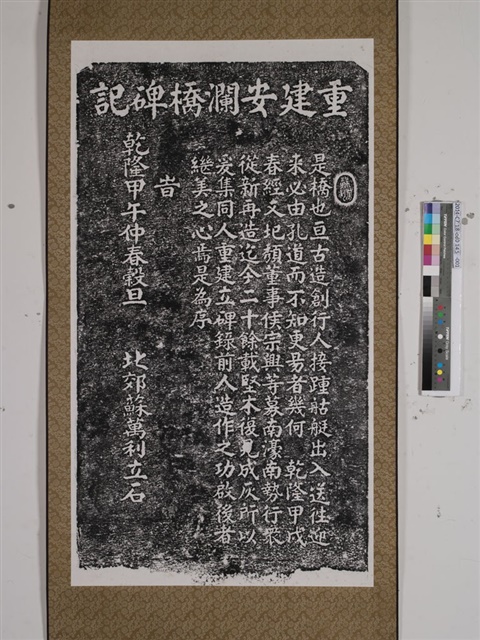 重建安瀾橋碑記
是橋也亘古造創行人接踵舡艇出入送往迎
來必由孔道而不知更易者幾何　乾隆甲戌
春經文圮頹董事侯宗興等募南濠南勢行眾
從新再造迄今二十餘載堅木復見成灰所以
爰集同人重建立碑錄前人造作之功啟後者
繼美之心焉是為序
旹
乾隆甲午仲春穀旦　北郊蘇萬利立石